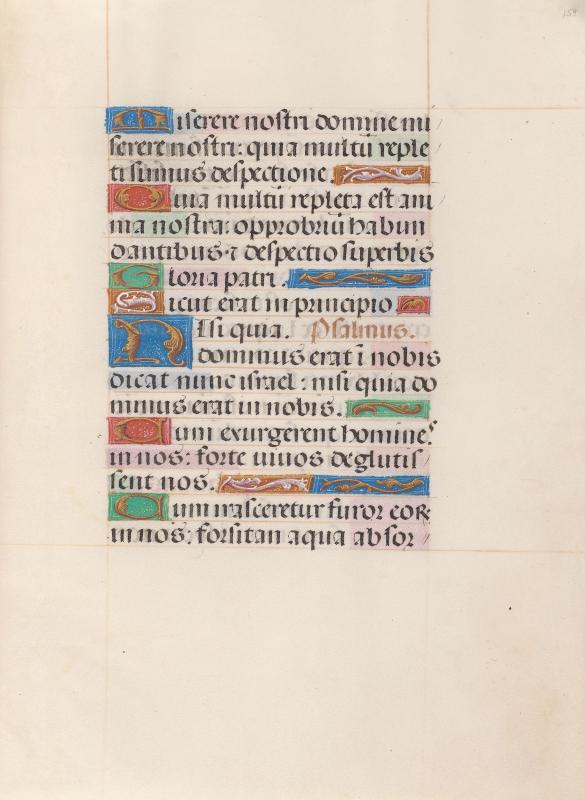 159
Miserere nostri domine mi
serere nostri: quia multū reple
ti sumus despectione.
Quia multū repleta est ani
ma nostra: opprobriū habun
dantibus ⁊ despectio superbis
Gloria patri.
Sicut erat in principio.
Nisi quia. Psalmus.
dominus erat ī nobis
dicat nunc israel: nisi quia do
minus erat in nobis.
Cum exurgerent homines
in nos: forte vivos deglutis
sent nos.
Cum irasceretur furor eor
in nos: forsitan aqua absor